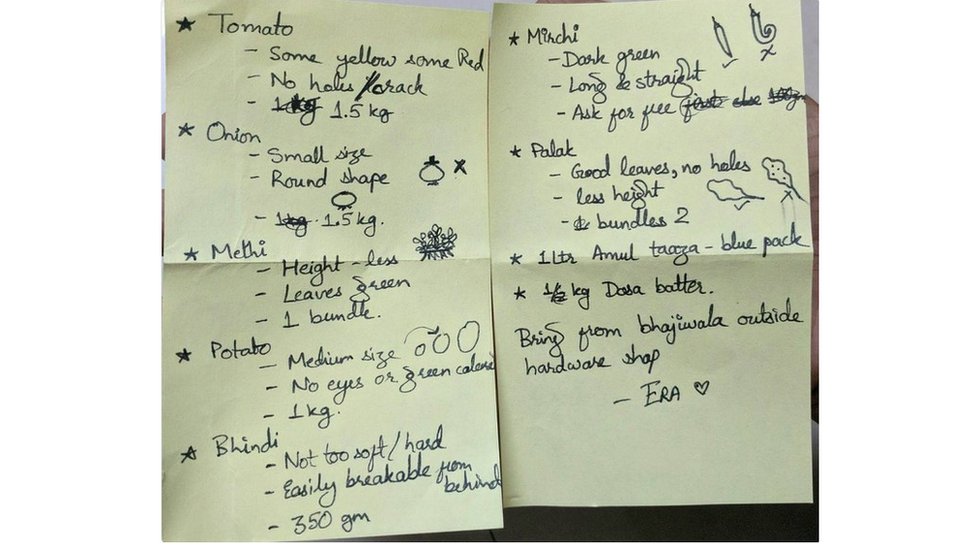 ★ Tomato
- Some yellow some Red
- No holes / crack
- 1.5 kg
★ Onion
- Small size
- Round shape
x
- 1.5 kg.
★ Methi
- Height - less
- Leaves green
- 1 bundle.
★ Potato
- Medium size
- No eyes or green colored
- 1 kg.
★ Bhindi
- Not too soft / hard
- Easily breakable from
behind
- 350 gm
★ Mirchi
- Dark green
- Long & straight
✓ x
- Ask for free
★ Palak
- Good leaves, no holes
- less height
✓ x
- bundles 2
★ 1 ltr Amul taaza - blue pack
★ kg Dosa batter.
Bring from bhajiwala outside
hardware shop
- ERA ♡